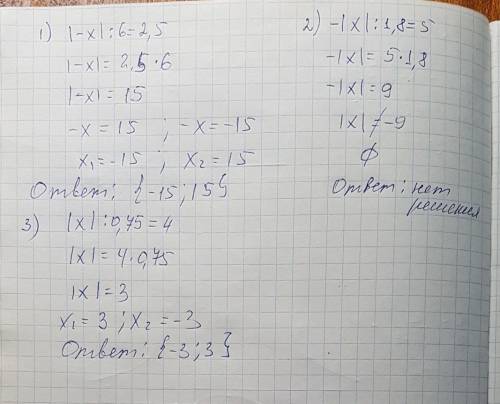 1) |-x| : 6 = 2,5
|-x| = 2,5 · 6
|-x| = 15
-x = 15 ; -x = -15
x₁ = -15 ; x₂ = 15
Ответ: {-15; 15}
2) -|x| : 1,8 = 5
-|x| = 5 · 1,8
-|x| = 9
|x| ≠ -9
∅
Ответ: нет
решения
3) |x| : 0,75 = 4
|x| = 4 · 0,75
|x| = 3
x₁ = 3 ; x₂ = -3
Ответ: {-3; 3}